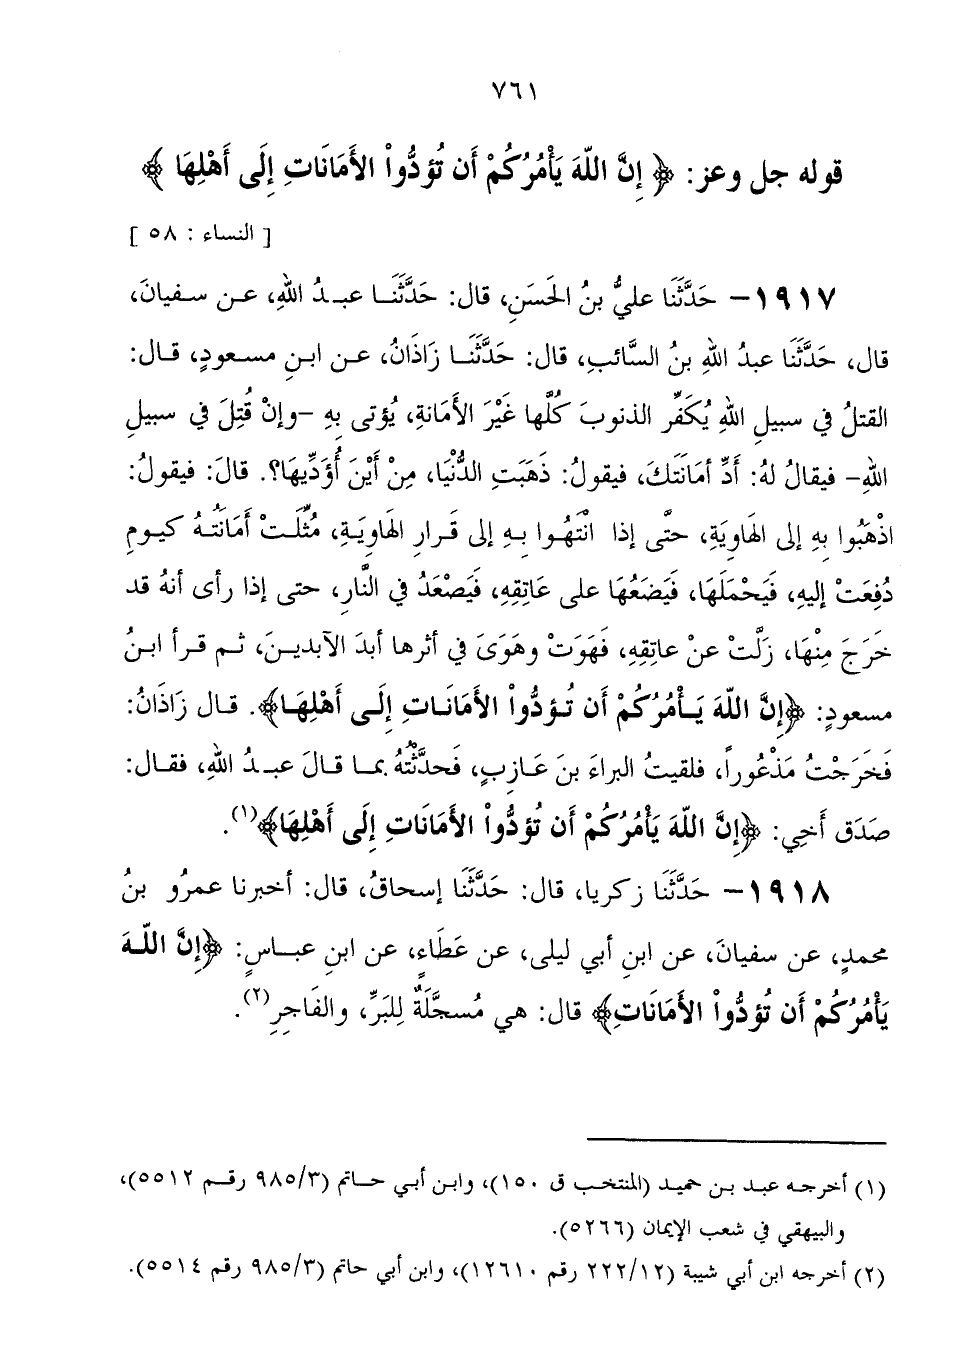 ٧٦١
قوله جل وعز: ﴿إِنَّ اللّهَ يَأْمُرُكُمْ أَن تُؤدُّواْ الأَمَانَاتِ إِلَى أَهْلِهَا﴾
[ النساء : ٥٨ ]
١٩١٧– حَدَّثَنَا عليُّ بنُ الحَسَنِ، قال: حَدَّثَنَــا عبــدُ اللهِ، عـن سـفيانَ،
قال، حَدَّثَنَا عبدُ اللهِ بنُ السَّائبِ، قال: حَدَّثَنَــا زَاذَانُ، عـن ابـنِ مسـعودٍ، قـال:
القتلُ في سبيلِ اللهِ يُكَفِّر الذنوبَ كُلَّها غَيْرَ الأَمَانةِ، يُؤتى بِهِ –وإنْ قُتِلَ في سبيلِ
اللهِ– فيقالُ لهُ: أَدِّ أمَانَتَكَ، فيقولُ: ذَهَبَتِ الدُّنْيَا، مِنْ أَيْنَ أُؤَدِّيهَا؟. قالَ: فيقولُ:
اذْهَبُوا بِهِ إلى الهَاوِيَةِ، حتَّى إذا انْتَهُـوا بـهِ إلى قَـرارِ الهَاويَـةِ، مُثِّلَـتْ أَمَانَتُـهُ كيـومِ
دُفِعَتْ إليهِ، فَيَحْمَلَها، فَيَضَعُهَا على عَاتِقِهِ، فَيَصْعَدُ في النَّارِ، حتى إذا رأى أنهُ قد
خَرَجَ مِنْهَا، زَلَّتْ عنْ عاتِقِهِ، فَهَوَتْ وهَوَىَ في أثرها أبدَ الآبديـنَ، ثـم قـرأ ابـنُ
مسعودٍ: ﴿إِنَّ اللّهَ يَـأْمُرُكُمْ أَن تُـؤدُّواْ الأَمَانَـاتِ إِلَـى أَهْلِهَـا﴾. قـال زَاذَانُ:
فَخَرَجْتُ مَذْعُوراً، فلقيتُ البراءَ بنَ عَـازبٍ، فَحدَّثْتُهُ بمـا قـالَ عبـدُ اللهِ، فقـال:
صَدَق أَخِي: ﴿إِنَّ اللّهَ يَأْمُرُكُمْ أَن تُؤدُّواْ الأَمَانَاتِ إِلَى أَهْلِهَا﴾(١).
١٩١٨– حَدَّثَنَا زكريا، قال: حَدَّثَنَا إسحاقُ، قال: أخبرنا عمرُو بنُ
محمدٍ، عن سفيانَ، عن ابنِ أبي ليلى، عن عَطَاءٍ، عن ابنِ عبـاسٍ: ﴿إِنَّ اللّـهَ
يَأْمُرُكُمْ أَن تُؤدُّواْ الأَمَانَاتِ﴾ قال: هي مُسجَّلَةٌ لِلبَرِّ، والفَاجِرِ(٢).
(١) أخرجـه عبـد بـن حميد (المنتخـب ق ١٥٠)، وابـن أبي حـاتم (٩٨٥/٣ رقـم ٥٥١٢)،
والبيهقي في شعب الإيمان (٥٢٦٦).
(٢) أخرجه ابن أبي شيبة (٢٢٢/١٢ رقم ١٢٦١٠)، وابن أبي حاتم (٩٨٥/٣ رقم ٥٥١٤).